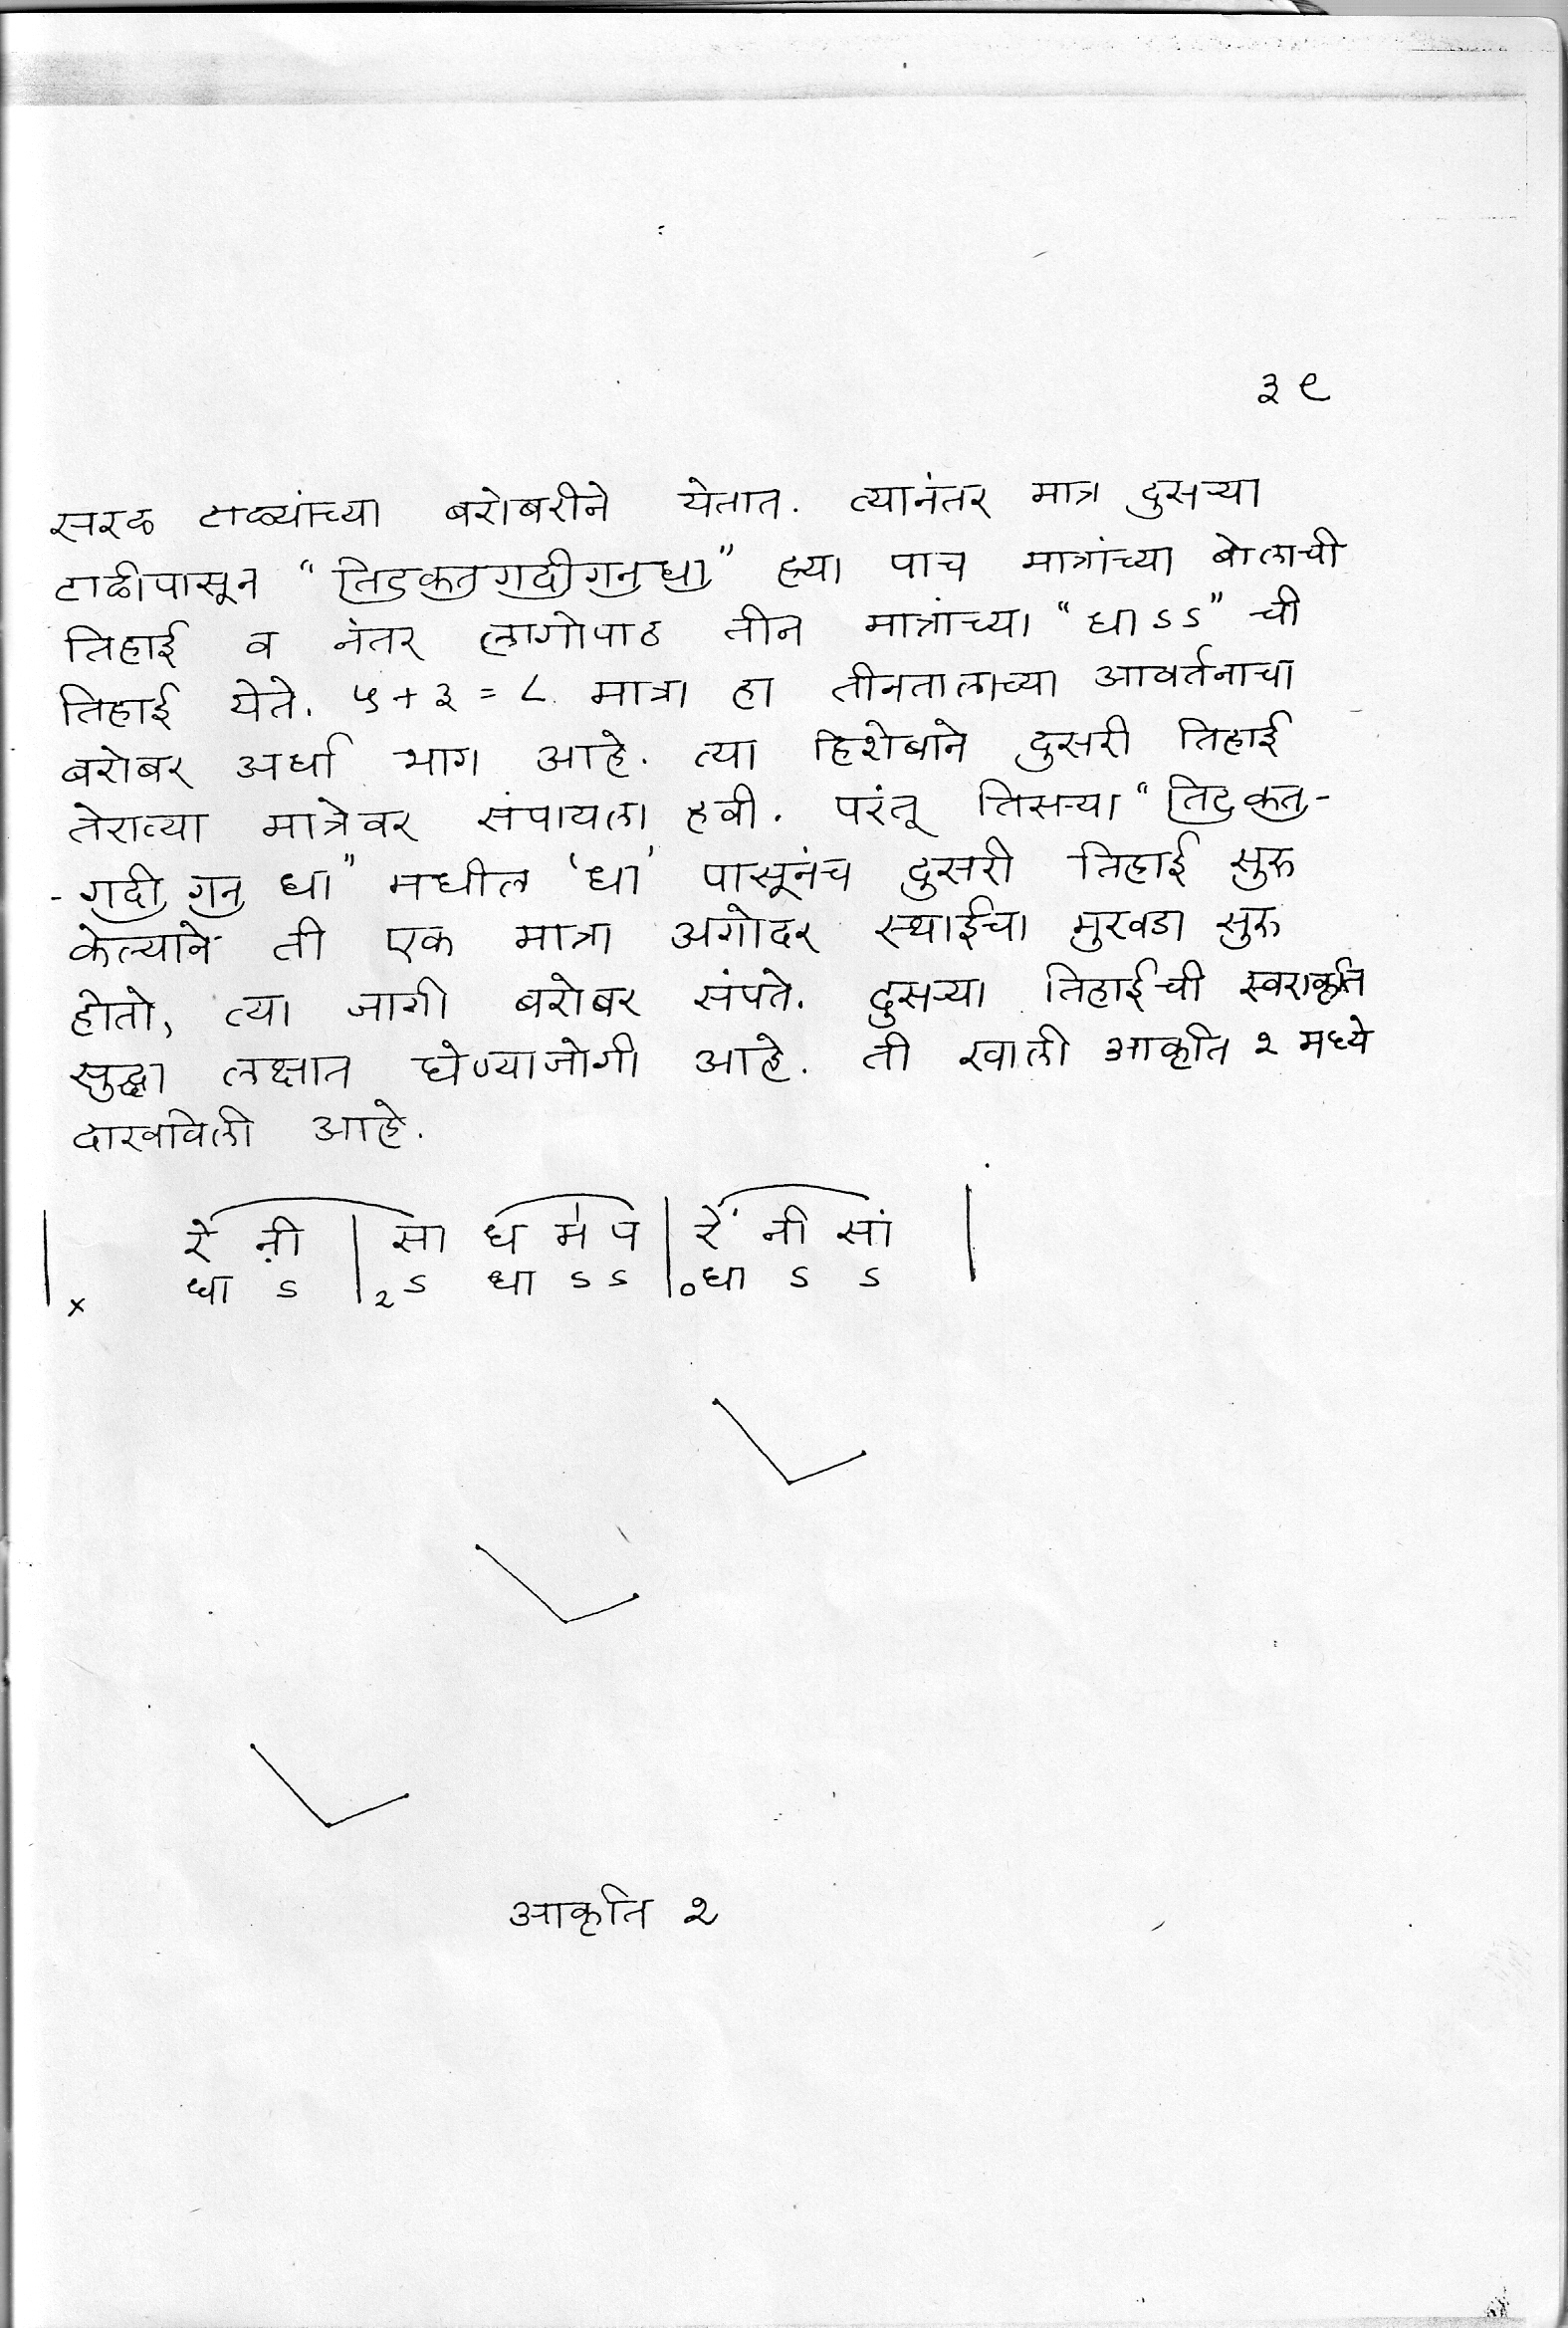 ३९
सरळ टाळ्यांच्या बरोबरीने येतात. त्यानंतर मात्र दुसऱ्या
टाळीपासून “तिटकतगदीगनधा” ह्या पाच मात्रांच्या बोलाची
तिहाई व नंतर लागोपाठ तीन मात्रांच्या “धाऽऽ” ची
तिहाई येते. ५+३=८ मात्रा हा तीनतालाच्या आवर्तनाचा
बरोबर अर्धा भाग आहे. त्या हिशेबाने दुसरी तिहाई
तेराव्या मात्रेवर संपायला हवी. परंतू तिसऱ्या “तिटकत-
-गदी गन धा” मधील ‘धा’ पासूनंच दुसरी तिहाई सुरु
केल्याने ती एक मात्रा अगोदर स्थाईचा मुखडा सुरु
होतो, त्या जागी बरोबर संपते. दुसऱ्या तिहाईची स्वराकृति
सुद्धा लक्षात घेण्याजोगी आहे. ती खाली आकृति २ मध्ये
दाखविली आहे.
| रे ऩी | सा ध म॑ प | रें नी सां |
x धा ऽ | २ ऽ धा ऽ ऽ | ० धा ऽ ऽ
आकृति २